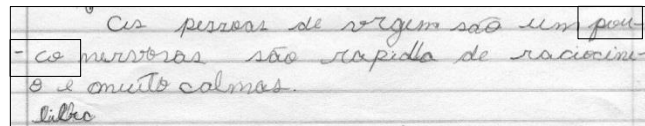 As pessoas de virgem são um pou-
-co nervosas são rapidla de raciocine-
o e muito calmas.